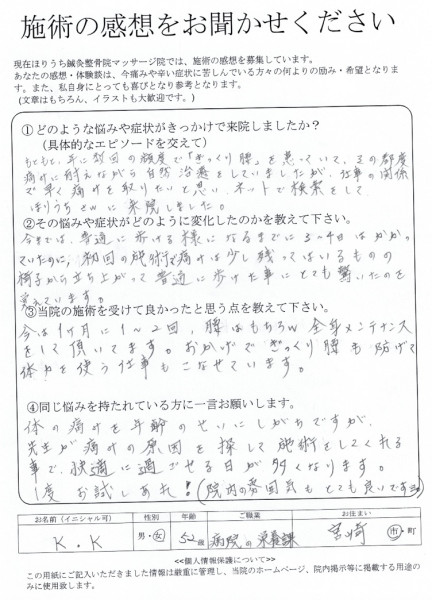 施術の感想をお聞かせください
現在ほりうち鍼灸整骨院マッサージ院では、施術の感想を募集しています。
あなたの感想・体験談は、今痛みや辛い症状に苦しんでいる方々の何よりの励み・希望となりま
す。また、私自身にとっても喜びとなり参考となります。
(文章はもちろん、イラストも大歓迎です。)
①どのような悩みや症状がきっかけで来院しましたか？
(具体的なエピソードを交えて)
もともと、年に数回の頻度で「ぎっくり腰」を患っていて、その都度
痛みに耐えながら自然治癒をしていましたが、仕事の関係
で早く痛みを取りたいと思い、ネットで検索をして
ほりうちさんに来院しました。
②その悩みや症状がどのように変化したのかを教えて下さい。
今までは、普通に歩ける様になるまでに3〜4日はかかっ
ていたのに、初回の施術で痛みは少し残ってはいるものの
椅子から立ち上がって普通に歩けた事にとても驚いたのを
覚えています。
③当院の施術を受けて良かったと思う点を教えて下さい。
今は1ヶ月に1〜2回、腰はもちろん全身メンテナンス
をして頂いてます。おかげでぎっくり腰も防げて
体力を使う仕事もこなせています。
④同じ悩みを持たれている方に一言お願いします。
体の痛みを年齢のせいにしがちですが、
先生が痛みの原因を探して施術をしてくれる
事で、快適に過ごせる日が多くなります。
1度お試しあれ！(院内の雰囲気もとても良いです
お名前（イニシャル可） 性別 年齢 ご職業 お住まい
K.K 男・女 52歳 病院の栄養課 宮崎 市・町
<<個人情報保護について>>
この用紙にご記入いただきました情報は厳重に管理し、当院のホームページ、院内掲示等に掲載する用途の
みに使用致します。